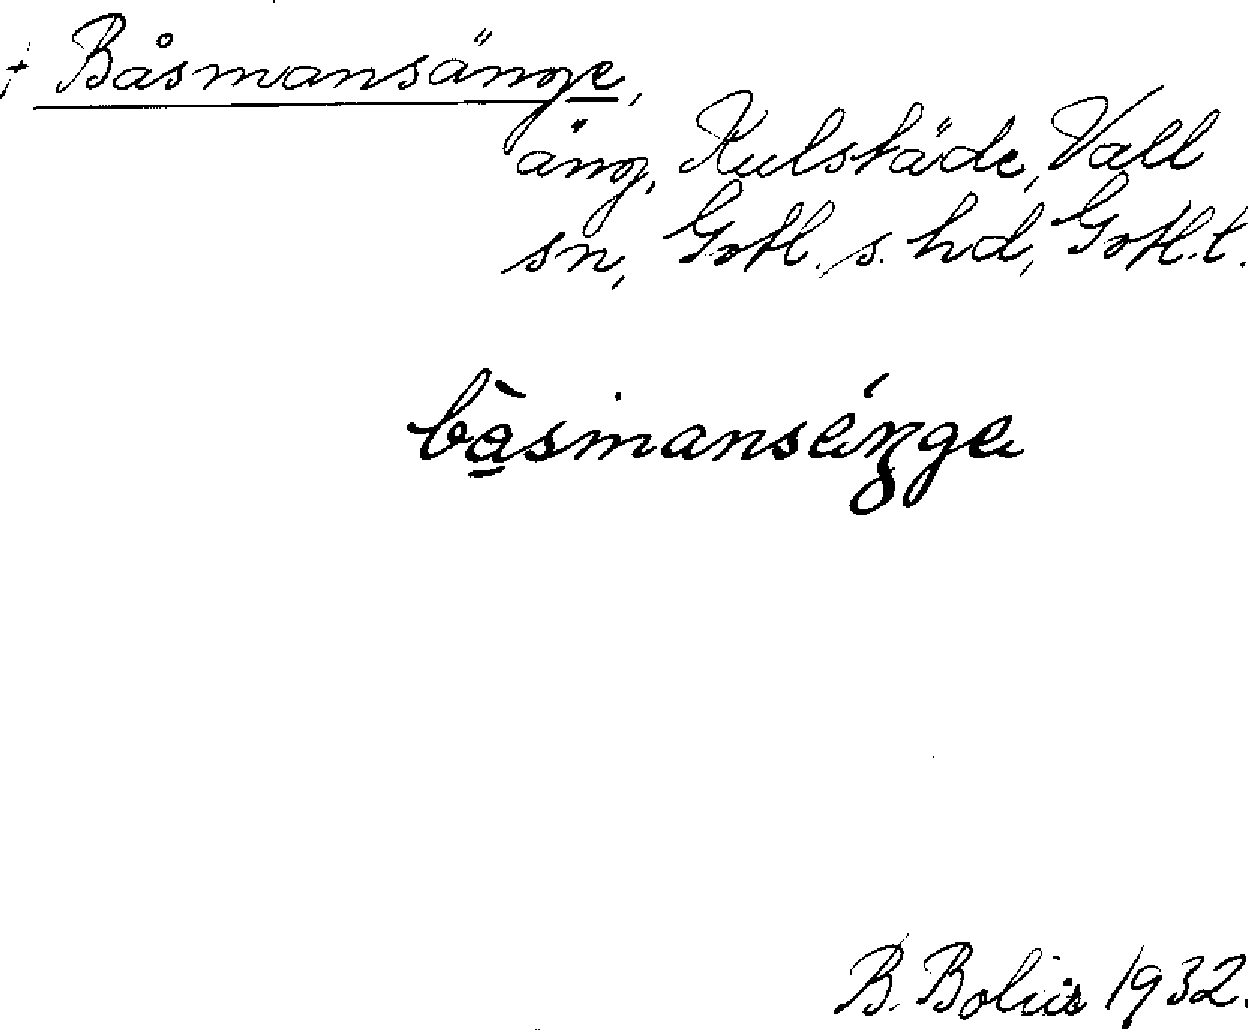 + Båsmansänge,
äng, Kulstäde, Vall
sn, Gotl. s. hd, Gotl. l.
bà̱smanséŋge
B. Bolin 1932.